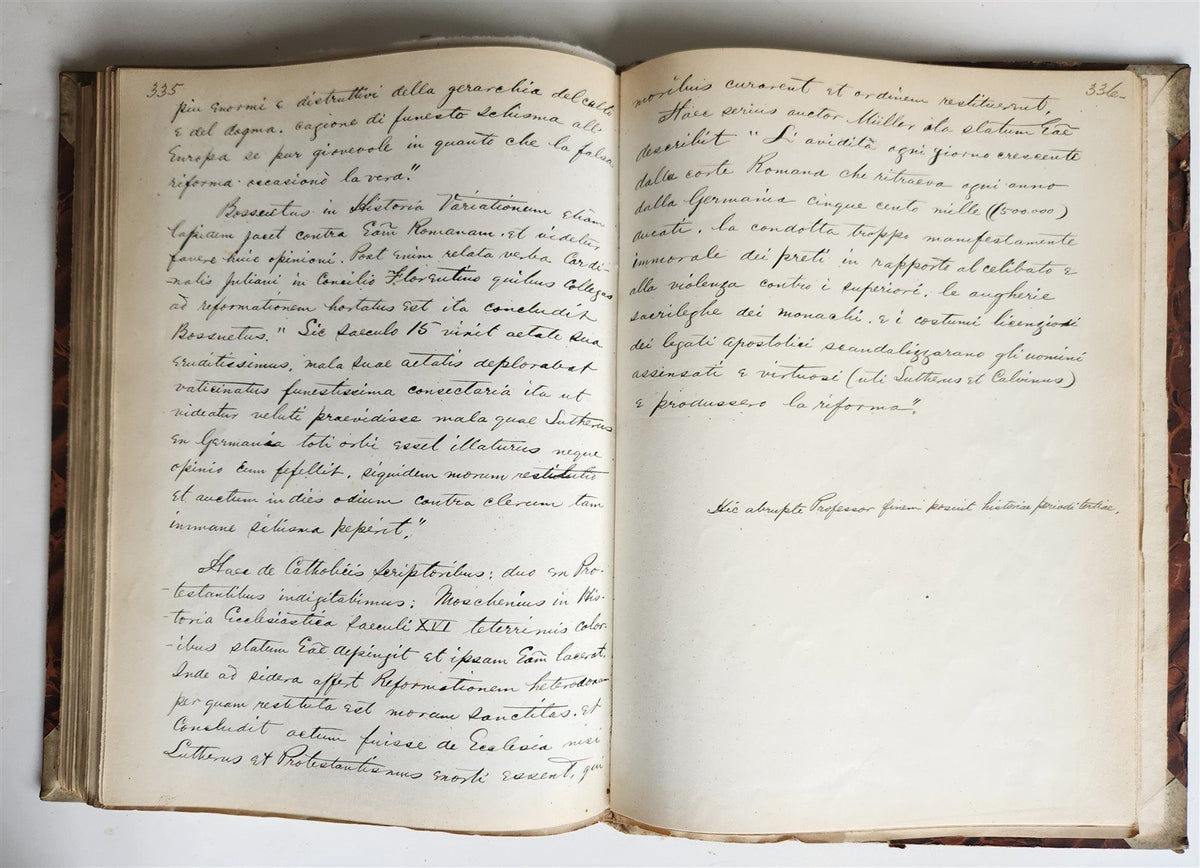 335
piu enormi e distruttivi della gerarchia del culto
e del dogma. cagione di funesto schisma all'
Europa se pur giovevole in quanto che la falsa
riforma occasionò la vera."
Bossuetus in Historia Variationum etiam
lapidem jacit contra Eām Romanam. et videtur
favere huic opinioni. Post enim relata verba Cardi-
-nalis Juliani in Concilio Florentino quibus Collegas
ad reformationem hortatus est ita concludit
Bossuetus. "Sic saeculo 15 vixit aetate sua
eruditissimus, mala suae aetatis deplorabat
vaticinatus funestissima consectaria ita ut
videatur veluti praevidisse mala quae Lutherus
en Germania toti orbi esset illaturus neque
opinio eum fefellit, siquidem morum restitutio
et auctum in dies odium contra clerum tam
immane schisma peperit."
Haec de Catholicis scriptoribus; duo en Pro-
-testantibus indigitabimus; Moschenius in His-
-toria Ecclesiastica saeculi XVI teterrimis color-
-ibus statum Eāe depingit et ipsam Eām lacerat.
Inde ad sidera affert Reformationem heterodoxam
per quam restituta est morum sanctitas. et
Concludit actum fuisse de Ecclesia nisi
Lutherus et Protestantismus exorti essent, qui
336-
moribus curarent et ordinem restituerent.
Haec serius auctor Müller ita statum Eāe
describit "L'avidità ogni giorno crescente
dalla corte Romana che ritraeva ogni anno
dalla Germania cinque cento mille (500.000)
ducati, la condotta troppo manifestamente
immorale dei preti in rapporto al celibato e
alla violenza contro i superiori, le angherie
sacrileghe dei monachi, e i costumi licenziosi
dei legati apostolici scandalizzarano gli uomini
assensati e virtuosi (uti Lutherus et Calvinus)
e produssero la riforma".
Hic abrupte Professor finem posuit historiae periodi tertiae.